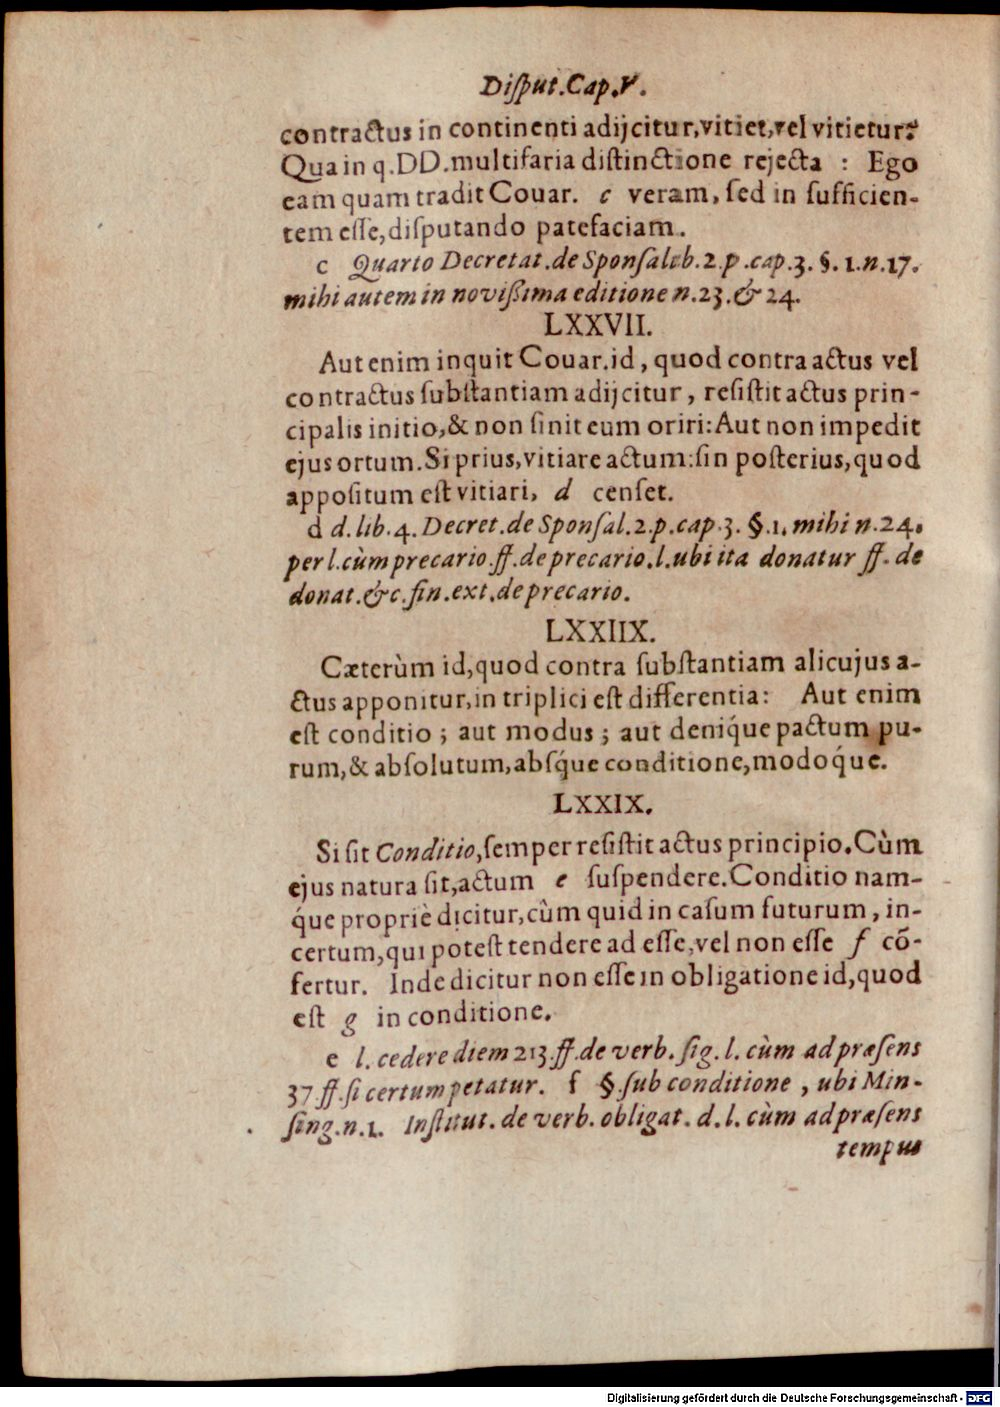 Diſput. Cap. V.
contractus in continenti adijcitur, vitiet, vel vitietur?
Qua in q. DD. multifaria diſtinctione rejecta : Ego
eam quam tradit Couar. c veram, ſed in ſufficien-
tem eſſe, diſputando patefaciam.
c Quarto Decretat. de Sponſalib. 2. p. cap. 3. §. 1. n. 17.
mihi autem in novißima editione n. 23. & 24.
LXXVII.
Aut enim inquit Couar. id, quod contra actus vel
contractus ſubſtantiam adijcitur, reſiſtit actus prin-
cipalis initio, & non ſinit eum oriri: Aut non impedit
ejus ortum. Si prius, vitiare actum: ſin poſterius, quod
appoſitum eſt vitiari, d cenſet.
d d. lib. 4. Decret. de Sponſal. 2. p. cap. 3. §. 1. mihi n. 24.
per l. cùm precario. ff. de precario. l. ubi ita donatur ff. de
donat. & c. fin. ext. de precario.
LXXIIX.
Cæterùm id, quod contra ſubſtantiam alicujus a-
ctus apponitur, in triplici eſt differentia: Aut enim
eſt conditio ; aut modus ; aut deniq́ue pactum pu-
rum, & abſolutum, abſq́ue conditione, modoq́ue.
LXXIX.
Si ſit Conditio, ſemper reſiſtit actus principio. Cùm
ejus natura ſit, actum e ſuſpendere. Conditio nam-
q́ue propriè dicitur, cùm quid in caſum futurum, in-
certum, qui poteſt tendere ad eſſe, vel non eſſe f cõ-
fertur. Inde dicitur non eſſe in obligatione id, quod
eſt g in conditione.
e l. cedere diem 213. ff. de verb. ſig. l. cùm ad præſens
37. ff. ſi certum petatur. f §. ſub conditione, ubi Min-
ſing. n. 1. Inſtitut. de verb. obligat. d. l. cùm ad præſens
tempus
Digitalisierung gefördert durch die Deutsche Forschungsgemeinschaft - DFG